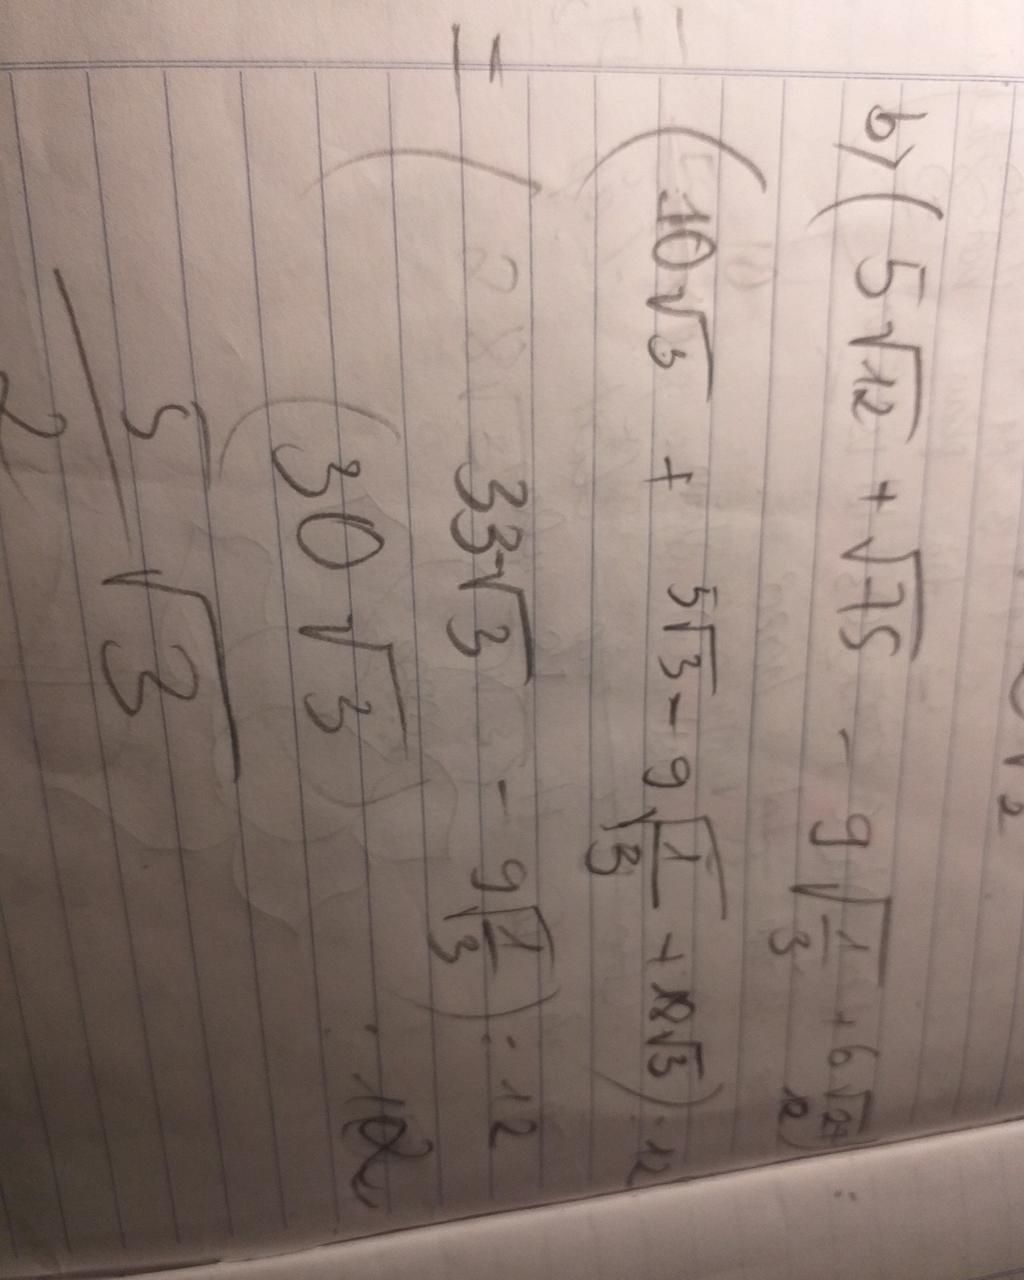 b) (5√12 + √75 - 9√(1/3) + 6√27) : 12
(10√3 + 5√3 - 9√(1/3) + 18√3) : 12
= (33√3 - 9√(1/3)) : 12
(30√3 : 12
5√3
2